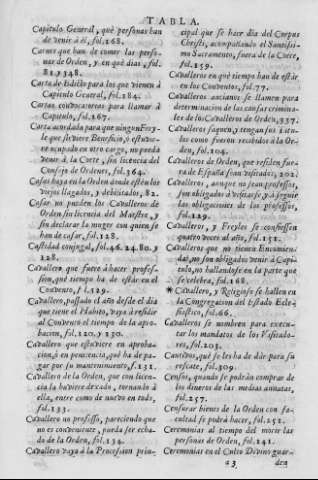 TABLA.
Capitulo General, y què personas han
de venir à èl, fol. 168.
Carnes que han de comer las perso-
nas de Orden, y en què dias, fol.
81. y 348.
Carta de Edicto para los que vienen à
Capitulo General, fol. 284.
Cartas convocatorias para llamar à
Capitulo, fol. 267.
Carta acordada para que ningun Frey-
le que sirviere Beneficio, ò estuvie-
re ocupado en otro cargo, no pueda
venir à la Corte, sin licencia del
Consejo de Ordenes, fol. 364.
Casas haya en la Orden donde estèn los
viejos llagados, y debilitados, 82.
Casar no pueden los Cavalleros de
Orden sin licencia del Maestre, y
sin declarar la muger con quien se
han de casar, fol. 128.
Castidad conjugal, fol. 46. 24. 80. y
128.
Cavallero que fuere à hacer profes-
sion, què tiempo ha de estàr en el
Convento, fol. 129.
Cavallero, passado el año desde el dia
que tiene el Habito, vaya à residir
al Convento el tiempo de la apro-
bacion, fol. 120. y 130.
Cavallero que estuviere en aproba-
cion, ò en penitencia, què ha de pa-
gar por su mantenimiento, f. 131.
Cavallero de la Orden, que con licen-
cia la huviere dexado, tornando à
ella, entre como de nuevo en todo,
fol. 133.
Cavallero no professo, pareciendo que
no es conveniente, pueda ser echa-
do de la Orden, fol. 134.
Cavallero vaya à la Procession prin-
cipal que se hace dia del Corpus
Christi, acompañando el Santissi-
mo Sacramento, fuera de la Corte,
fol. 159.
Cavalleros en què tiempo han de estàr
en los Conventos, fol. 77.
Cavalleros ancianos se llamen para
determinacion de las causas crimina-
les de los Cavalleros de Orden, 337.
Cavalleros saquen, y tengan sus titu-
los como fueron recibidos à la Or-
den, fol. 104.
Cavalleros de Orden, que residen fue-
ra de España sean visitados, 202.
Cavalleros, aunque no sean professos,
son obligados à visitarse, y à seguir
las obligaciones de los professos,
fol. 129.
Cavalleros, y Freyles se confiessen
quatro veces al año, fol. 151.
Cavalleros que no tienen Encomien-
da, no son obligados venir à Capi-
tulo, no hallandose en la parte que
se celebra, fol. 168.
Cavallero, y Religioso se hallen en
la Congregacion del Estado Ecle-
siastico, fol. 66.
Cavalleros se nombren para execu-
tar los mandatos de los Visitado-
res, fol. 203.
Cautivos, què se les ha de dàr para su
rescate, fol. 309.
Censos, quando se podràn comprar de
los dineros de las medias annatas,
fol. 257.
Censurar bienes de la Orden con fa-
cultad se podrà hacer, fol. 252.
Ceremonias al tiempo del morir las
personas de Orden, fol. 141.
Ceremonias en el Culto Divino guar-
a 3 den